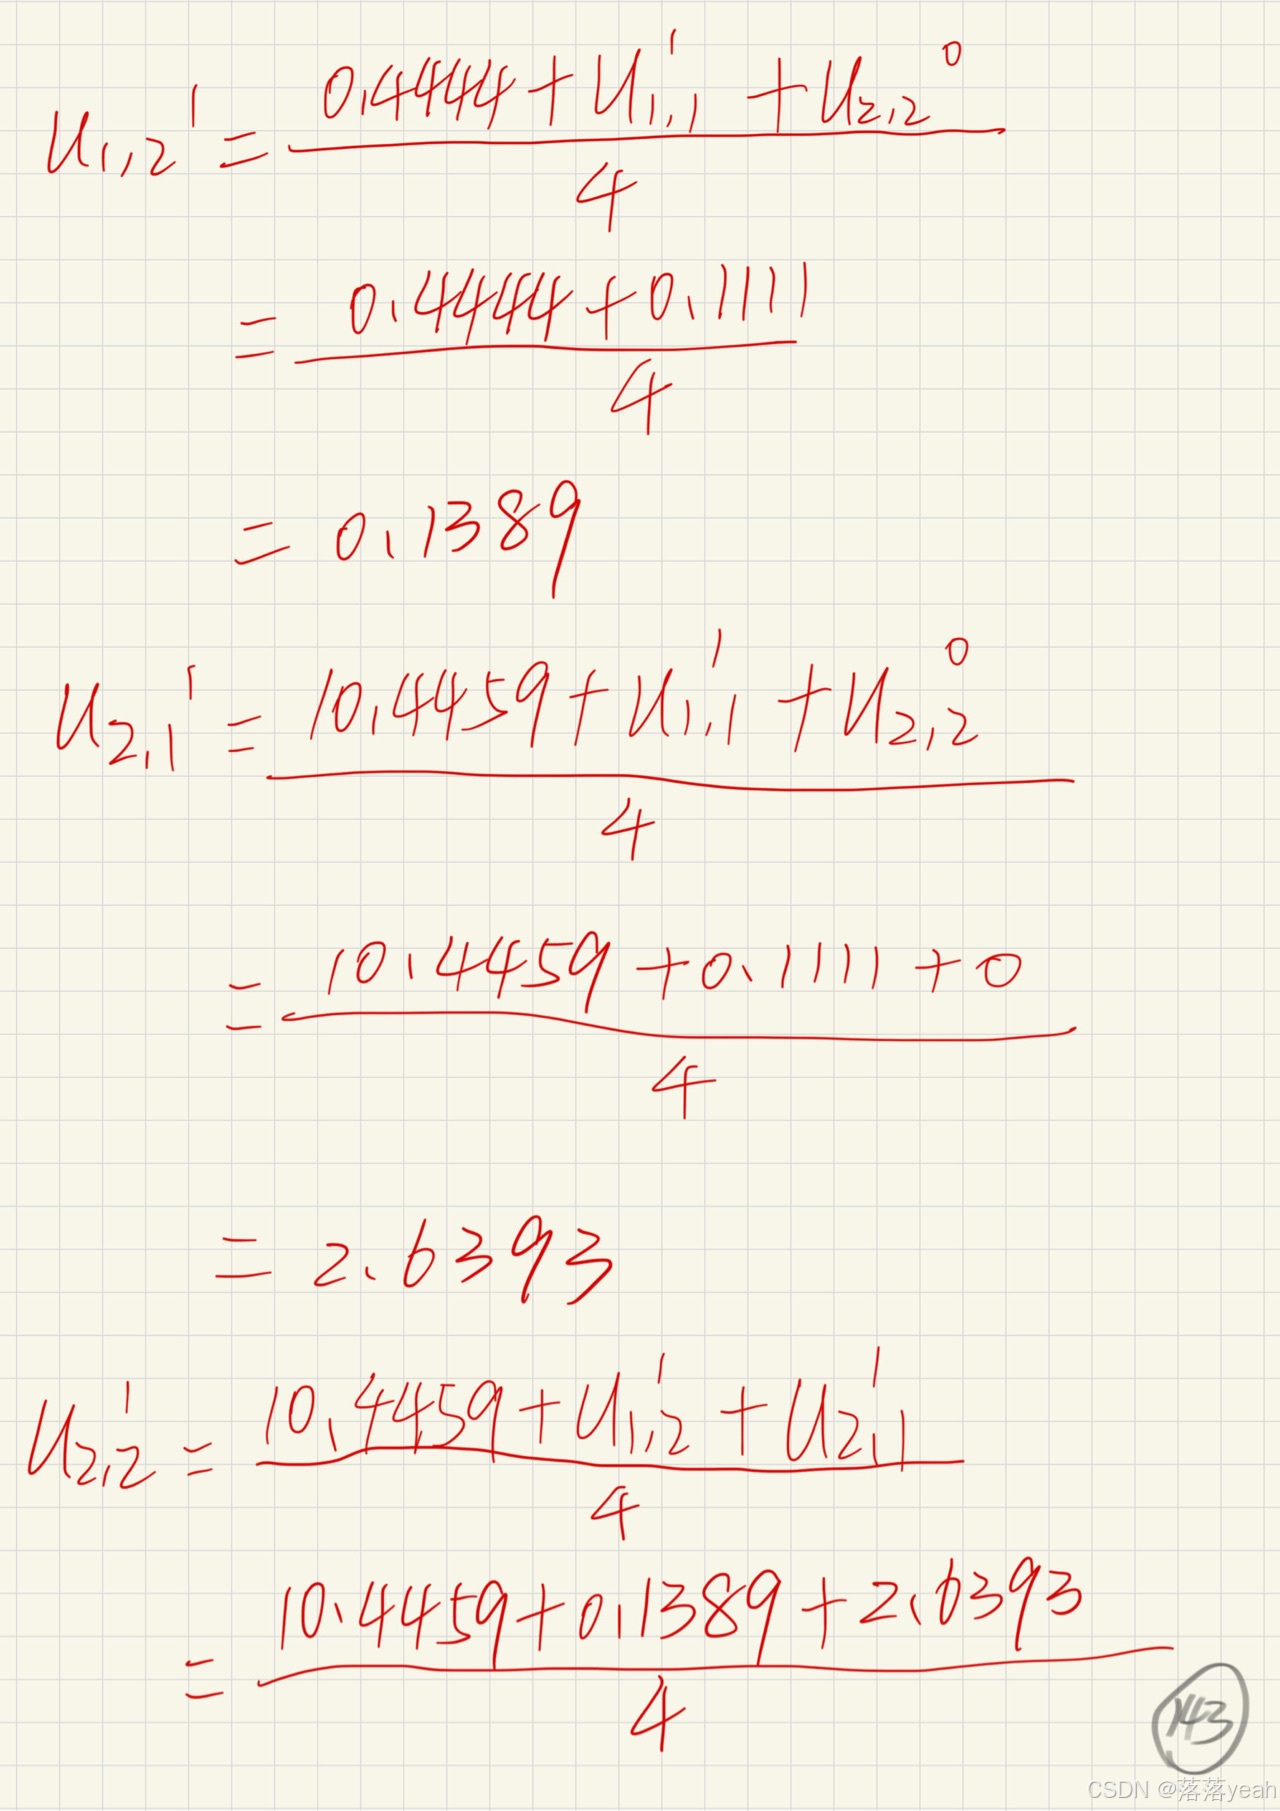 u₁,₂¹ = (0.4444 + u₁,₁¹ + u₂,₂⁰) / 4
= (0.4444 + 0.1111) / 4
= 0.1389
u₂,₁¹ = (10.4459 + u₁,₁¹ + u₂,₂⁰) / 4
= (10.4459 + 0.1111 + 0) / 4
= 2.6393
u₂,₂¹ = (10.4459 + u₁,₂¹ + u₂,₁¹) / 4
= (10.4459 + 0.1389 + 2.6393) / 4
143
CSDN @落落yeah